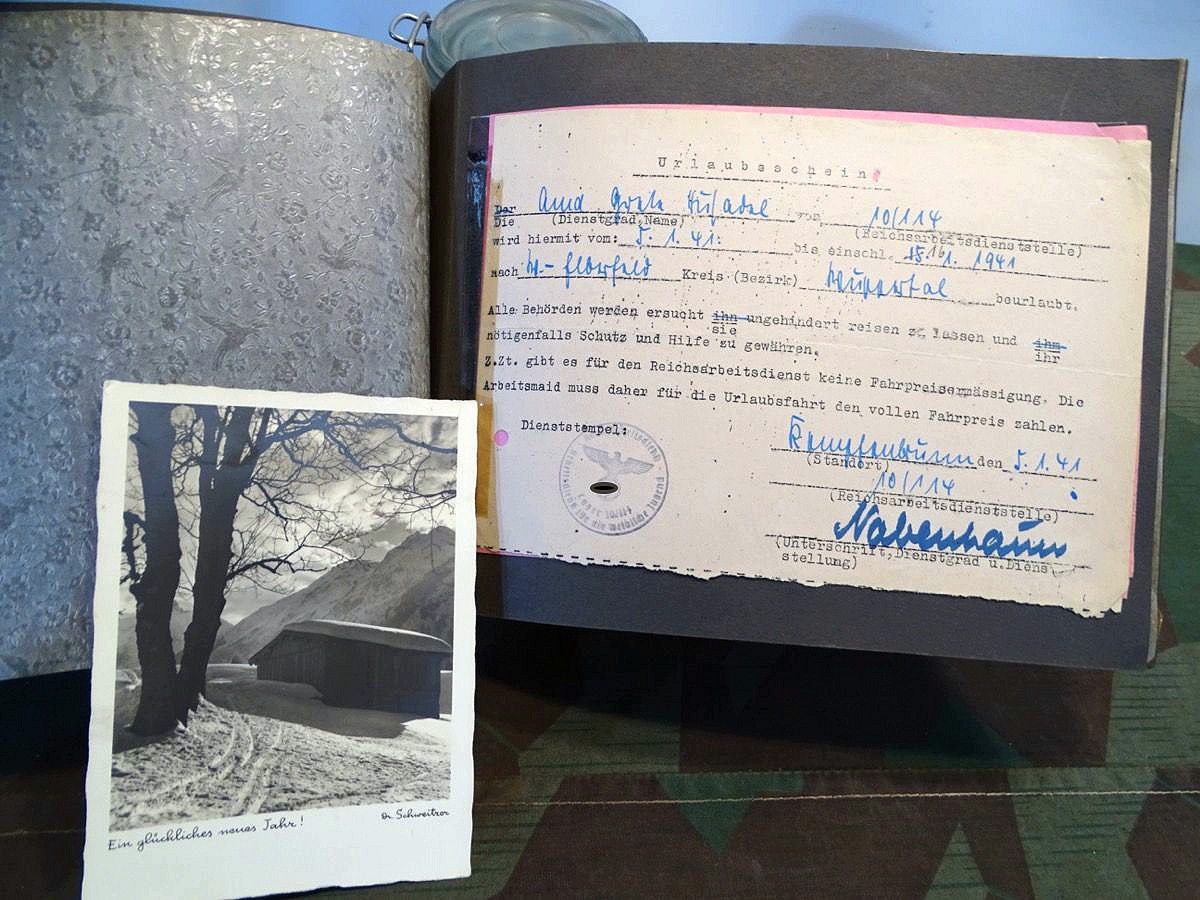 Urlaubsschein
Der Amd Grete Husadel von 10/114
Die (Dienstgrad,Name) (Reichsarbeitsdienststelle)
wird hiermit vom: 5. 1. 41. bis einschl. 1. 1941
nach W.-Elberfeld Kreis (Bezirk) Wuppertal beurlaubt.
Alle Behörden werden ersucht ihn ungehindert reisen zu lassen und ihm
sie ihr
nötigenfalls Schutz und Hilfe zu gewähren.
Z.Zt. gibt es für den Reichsarbeitsdienst keine Fahrpreisermässigung. Die
Arbeitsmaid muss daher für die Urlaubsfahrt den vollen Fahrpreis zahlen.
Dienststempel:
Kempfenbrunn den 5.1.41
(Standort)
10/114
(Reichsarbeitsdienststelle)
(Unterschrift,Dienstgrad u.Diens
stellung)
Lager 10/114
für die weibliche Jugend
Ein glückliches neues Jahr!
Dr. Schweitzer